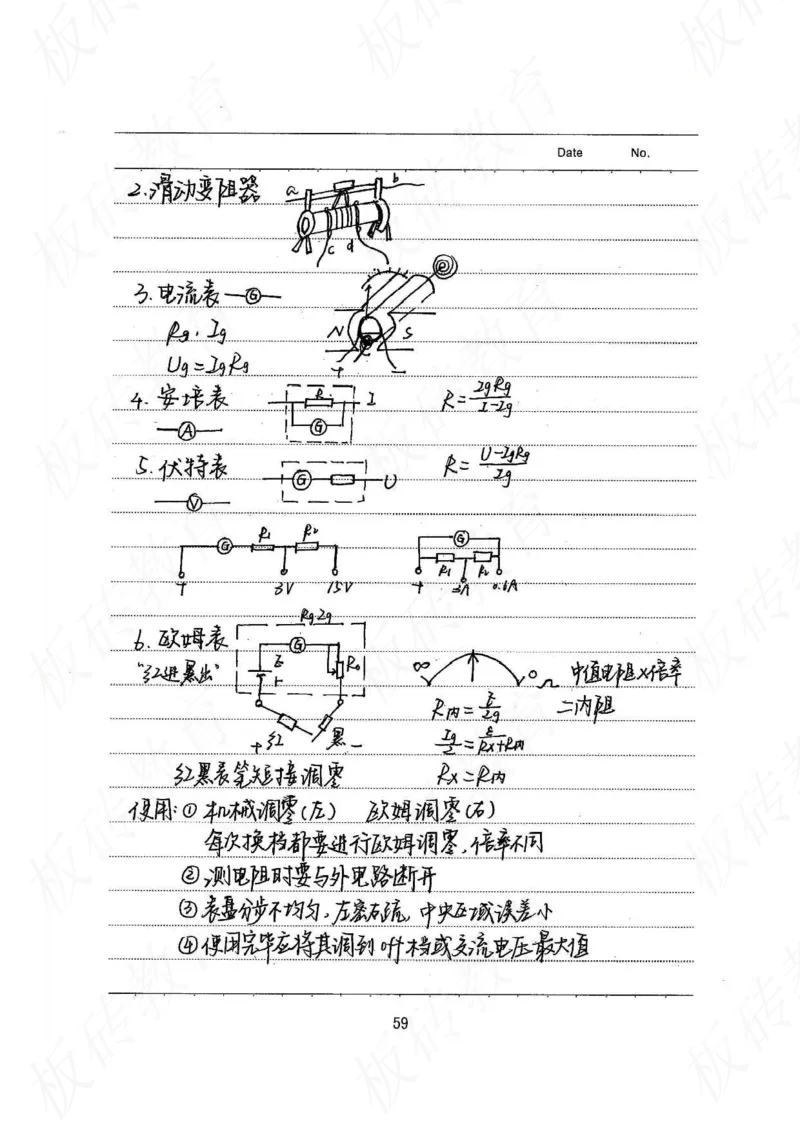 Date No.
2.滑动变阻器 a b
c d
3.电流表 G
Rg.Ig N S
Ug=IgRg + −
4.安培表 R I R=IgRg/(I-Ig)
A G
5.伏特表 G U R=(U-IgRg)/Ig
V
G R1 R2 G
R1 R2
+ 3V 15V + 3A 0.6A
Rg.Ig
6.欧姆表 G
"红进黑出" E r R0 ∞ 0 Ω 中值电阻×倍率
R内=E/Ig =内阻
+红 黑− Ig/2=E/(Rx+R内)
红黑表笔短接调零 Rx=R内
使用:①机械调零(左) 欧姆调零(右)
每次换档都要进行欧姆调零,倍率不同
②测电阻时要与外电路断开
③表盘分步不均匀,左密右疏,中央区域误差小
④使用完毕应将其调到off档或交流电压最大值
59
板砖教育